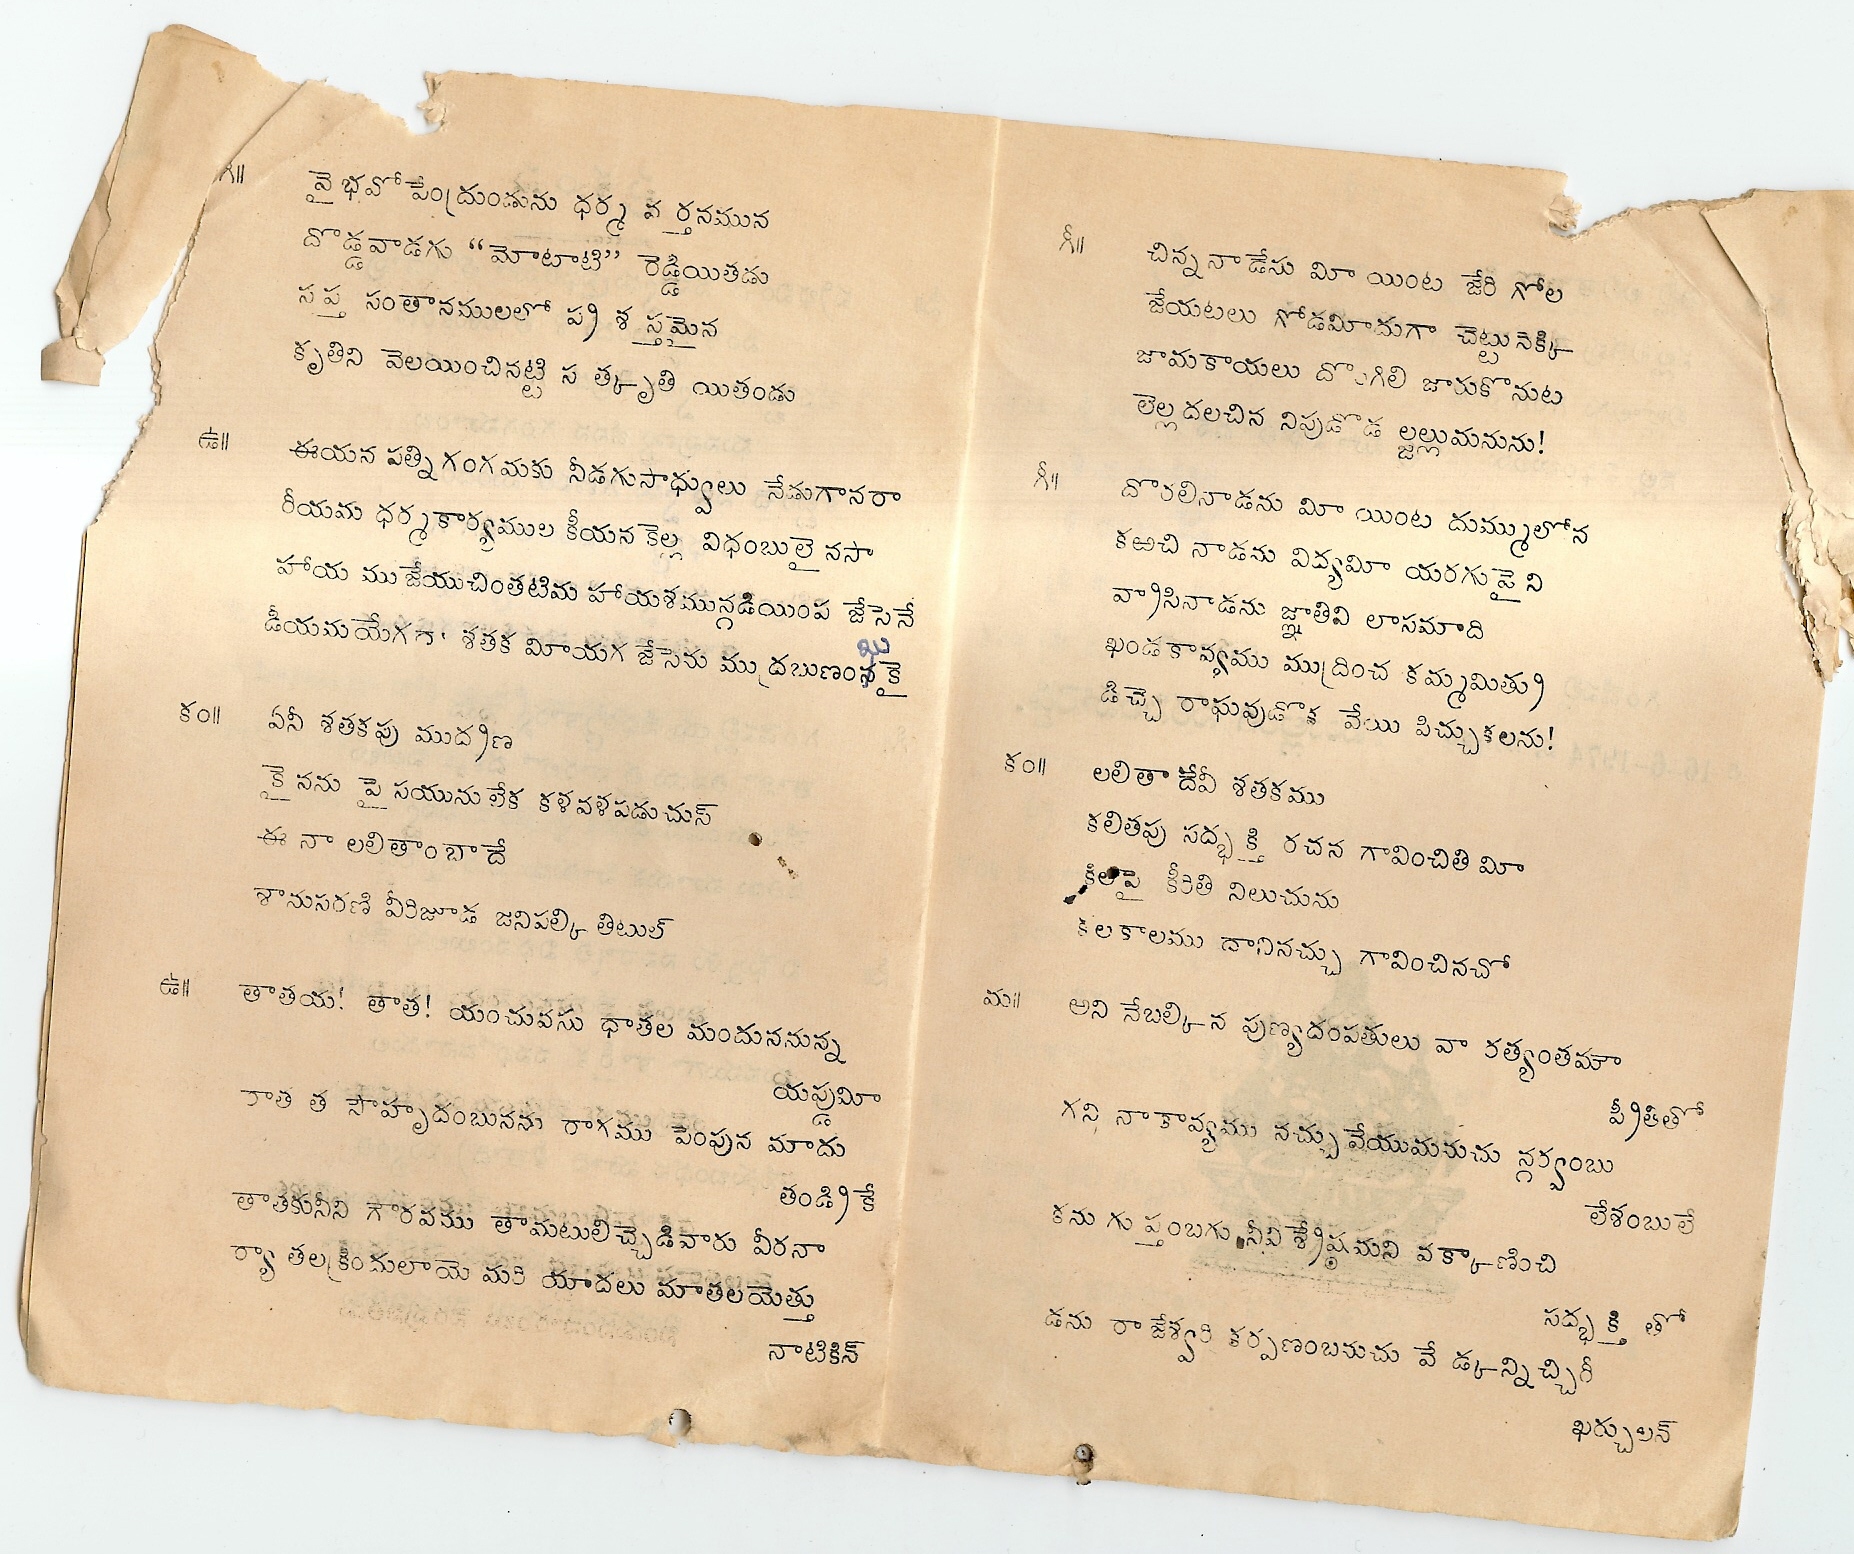 గీ॥ వైభవోపేంద్రుండును ధర్మ వర్తనమున
దొడ్డవాడగు “మోటాటి” రెడ్డియితడు
సప్త సంతానములలో ప్రశస్తమైన
కృతిని వెలయించినట్టి సత్కృతి యితండు
ఉ॥ ఈయన పత్ని గంగమకు నీడగుసాధ్వులు నేడుగానరా
రీయమ ధర్మకార్యముల కీయనకెల్ల విధంబులై నసా
హాయ ము జేయుచింతటిమ హాయశమున్గడియింప జేసెనే
డీయమయేగదా శతక మీయగ జేసెను ముద్రబుణంకై
కం॥ ఏనీ శతకపు ముద్రణ
కై నను పై సయును లేక కళవళపడుచున్
ఈ నా లలితాంబాదే
శానుసరణి వీరిజూడ జనిపల్కి తిటుల్
ఉ॥ తాతయ! తాత! యంచువసు ధాతల మందుననున్న
యప్డుమీ
రాత త సౌహృదంబునను రాగము పెంపున మాదు
తండ్రికే
తాతకునీని గౌరవము తామటులిచ్చెడివారు వీరనా
ర్యా తలక్రిందులాయె మరి యాదలు మాతలయెత్తు
నాటికిన్
గీ॥ చిన్ననాడేను మీ యింట జేరి గోల
జేయటలు గోడమీదుగా చెట్టునెక్కి
జామకాయలు దొంగిలి జారుకొనుట
లెల్లదలచిన నిపుడొడ ల్జల్లుమనును!
గీ॥ దొరలినాడను మీ యింట దుమ్ములోన
కఱచి నాడను విద్యమీ యరగుపైని
వ్రాసినాడను జ్ఞాతివి లాసమాది
ఖండకావ్యము ముద్రించ కమ్మమిత్రు
డిచ్చె రాఘవుడొక వేయి పిచ్చుకలను!
కం॥ లలితా దేవీ శతకము
కలితపు సద్భక్తి రచన గావించితి మీ
కిలపై కీరితి నిలుచును
కలకాలము దానినచ్చు గావించినచో
మ॥ అని నేబల్కిన పుణ్యదంపతులు వా రత్యంతమౌ
ప్రీతితో
గని నాకావ్యము నచ్చువేయుమనుచు న్గర్వంబు
లేశంబులే
కను గుప్తంబగు నీవి శ్రేష్ఠమని వక్కాణించి
సద్భక్తి తో
డను రాజేశ్వరి కర్పణంబనుచు వే డ్కన్నిచ్చిరీ
ఖర్చులన్